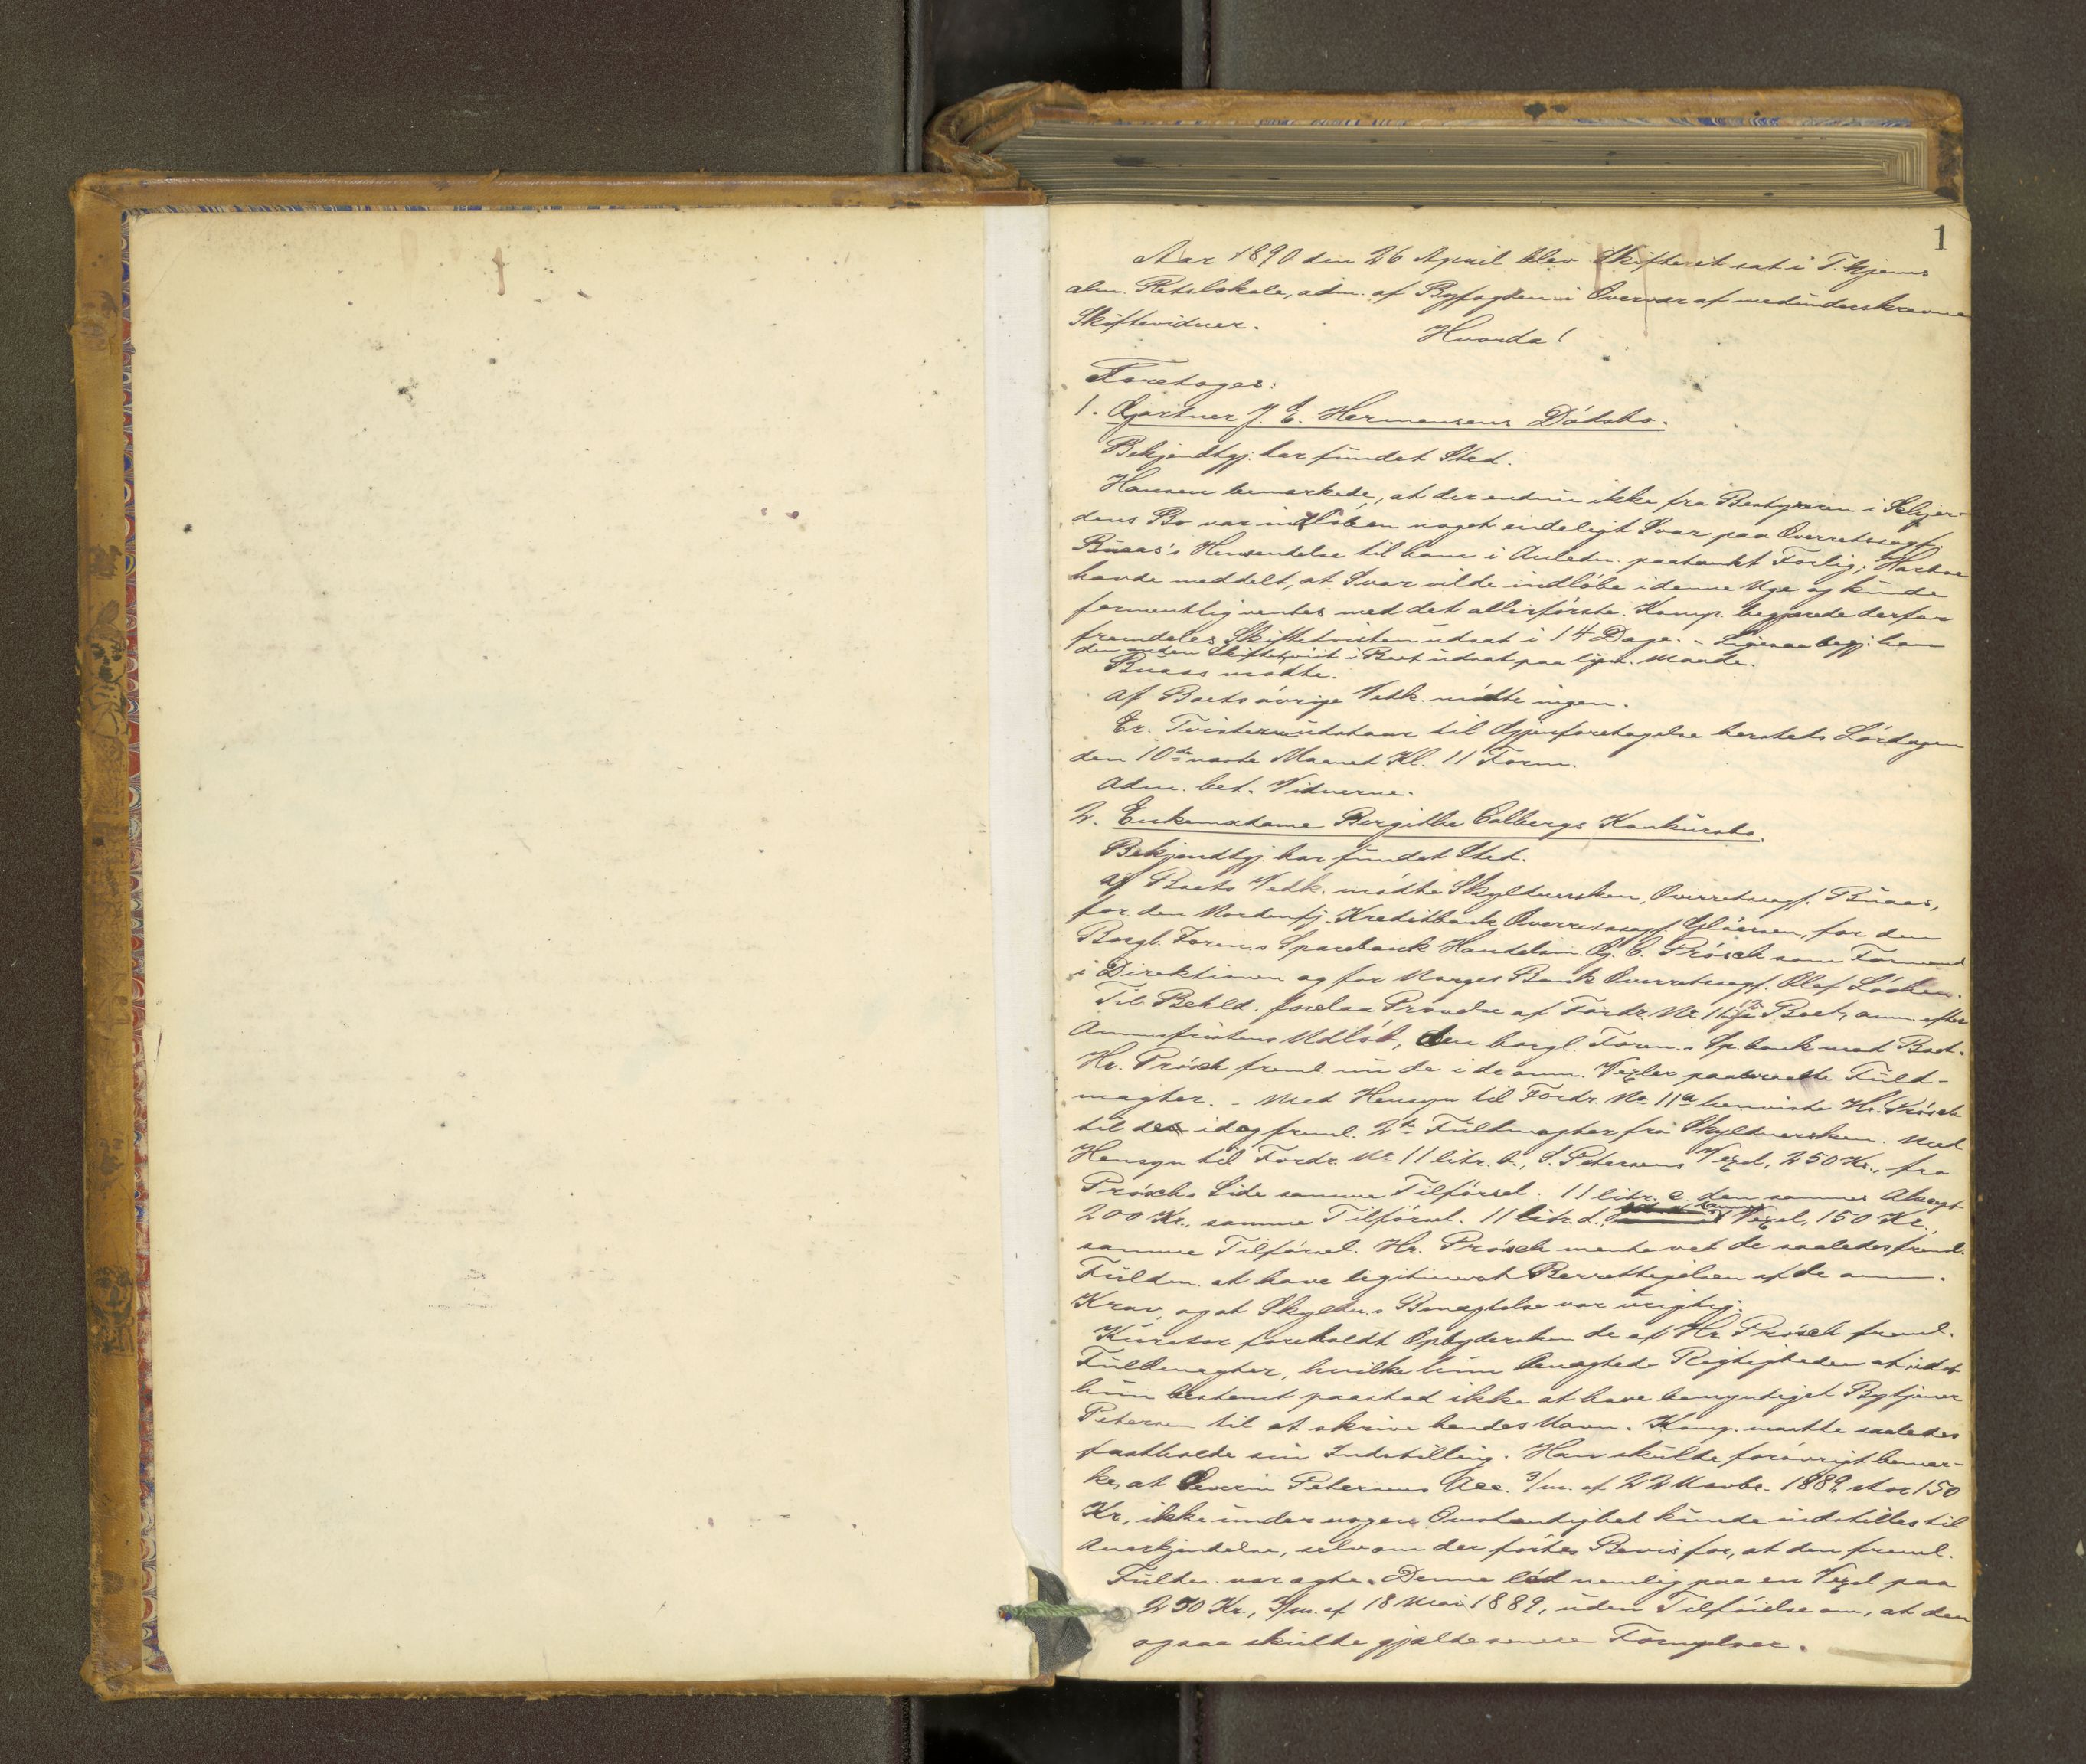 1
Aar 1890 den 26 April blev Skifteret sat i T.hjems
alm. Retslokale, adm. af Byfogden i Overvær af medunderskrevne
Skiftevidner.
Hvorda!
Foretoges:
1. Gjartner J. E. Hermansens Dødsbo.
Bekjendtgj. har fundet Sted.
Hansen bemærkede, at der endnu ikke fra Bestyreren i Selvjer-
dens Bo var indløben noget endeligt Svar paa Overretssagf.
Buaas's Henvendelse til ham i Anledn. paatænkt Forlig;
havde meddelt, at Svar vilde indløbe i denne Uge og kunde
formentlig ventes med det allerførste. Komp. begjærede derfor
fremdeles Skiftetvisten udsat i 14 Dage. - Ligesaa begj. han
den anden Skiftetvist i Boet udsat paa lign. Maade.
Buaas mødte.
Af Boets øvrige Vedk. mødte ingen.
Er. Tvisterne udstaar til Gjenforetagelse hersteds Lørdagen
den 10de næste Maaned Kl. 11 Form.
Adm. bet. Vidnerne.
2. Enkemadame Birgitte Colbergs Konkursbo.
Bekjendtgj. har fundet Sted.
Af Boets Vedk. mødte Skyldnersken, Overretssagf. Buaas,
for den Nordenfj. Kreditbank Overretssagf. Gløersen, for den
Borgl. Foren.s Sparebank Handelsm. Og. C. Prøsch som Formand
i Direktionen og for Norges Bank Overretssagf. Olaf Løchen.
Til Behld. forelaa Prøvelse af Fordr. No 11 i Boet, anm. efter
Anmefristens Udløb, den borgl. Foren.s Sp.bank med Boet.
Hr. Prøsch freml. nu de i de anm. Vexler paaberaabte Fuld-
magter. - Med Hensyn til Fordr. No 11a henviste Hr. Prøsch
til de idag freml. 2de Fuldmagter fra Skyldnersken. Med
Hensyn til Fordr. No 11 litr. b., S. Petersens Vexel, 250 Kr., fra
Prøschs Side samme Tilførsel. 11 litr. c. den sammes Aksept
200 Kr., samme Tilførsel. 11 litr. d. Vexel, 150 Kr.,
samme Tilførsel. Hr. Prøsch mente ved de saaledes freml.
Fuldm. at have legitimeret Berettigelsen af de anm.
Krav, og at Skyldn.s Benægtelse var urigtig.
Kurator foreholdt Opbydersken de af Hr. Prøsch freml.
Fuldmagter, hvilke hun benægtede Rigtigheden af, idet
hun bestemt paastod ikke at have bemyndiget Bytjener
Petersen til at skrive hendes Navn. Komp. maatte saaledes
fastholde sin Indstilling. Han skulde forøvrigt bemær-
ke, at Severin Petersens Acc. 3/m. af 22 Novbr. 1889 stor 150
Kr, ikke under nogen Omstændighed kunde indstilles til
Anerkjendelse, selv om der førtes Bevis for, at den freml.
Fuldm. var ægte. Denne lød nemlig paa en Vexel paa
250 Kr., 3/m. af 18 Mai 1889, uden Tilføielse om, at den
ogsaa skulde gjælde senere Fornyelser.